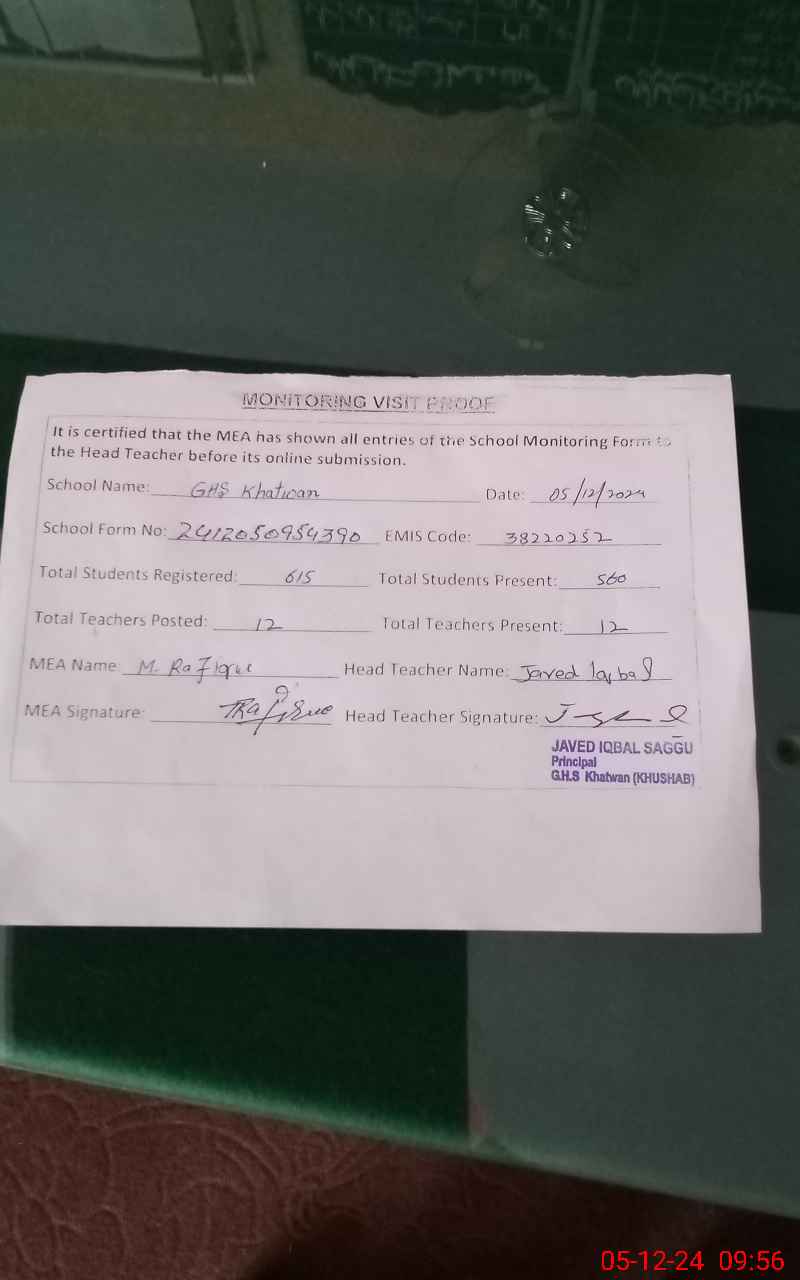 MONITORING VISIT PROOF
It is certified that the MEA has shown all entries of the School Monitoring Form to
the Head Teacher before its online submission.
School Name: GHS Khatwan Date: 05/12/2024
School Form No: 2412050954390 EMIS Code: 38220252
Total Students Registered: 615 Total Students Present: 560
Total Teachers Posted: 12 Total Teachers Present: 12
MEA Name: M. Rafique Head Teacher Name: Javed Iqbal
MEA Signature: Head Teacher Signature:
JAVED IQBAL SAGGU
Principal
G.H.S Khatwan (KHUSHAB)
05-12-24 09:56